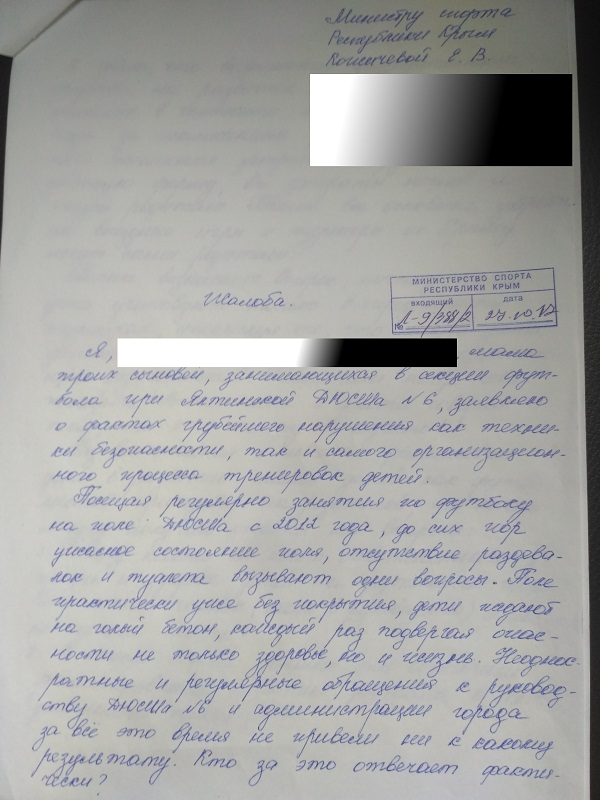 Министру спорта
Республики Крым
Кожичевой Е. В.
МИНИСТЕРСТВО СПОРТА
РЕСПУБЛИКИ КРЫМ
ВХОДЯЩИЙ
дата
№ Л-9/388/2
27.10.17
Жалоба.
Я, мама
троих сыновей, занимающихся в секции фут-
бола при Ялтинской ДЮСШа №6, заявляю
о фактах грубейшего нарушения как техни-
ки безопасности, так и самого организацион-
ного процесса тренировок детей.
Посещая регулярно занятия по футболу
на поле ДЮСШа с 2012 года, до сих пор
ужасное состояние поля, отсутствие раздева-
лок и туалета вызывают одни вопросы. Поле
практически уже без покрытия, дети падают
на голый бетон, каждый раз подвергая опас-
ности не только здоровье, но и жизнь. Неоднок-
ратные и регулярные обращения к руковод-
ству ДЮСШа №6 и администрации города
за всё это время не привели ни к какому
результату. Кто за это отвечает факти-
чески?